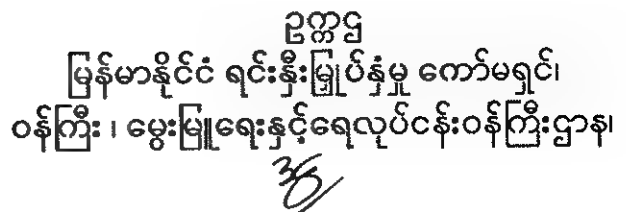 ဥက္ကဌ
မြန်မာနိုင်ငံ ရင်းနှီးမြှုပ်နှံမှု ကော်မရှင်၊
ဝန်ကြီး ၊ မွေးမြူရေးနှင့်ရေလုပ်ငန်းဝန်ကြီးဌာန၊